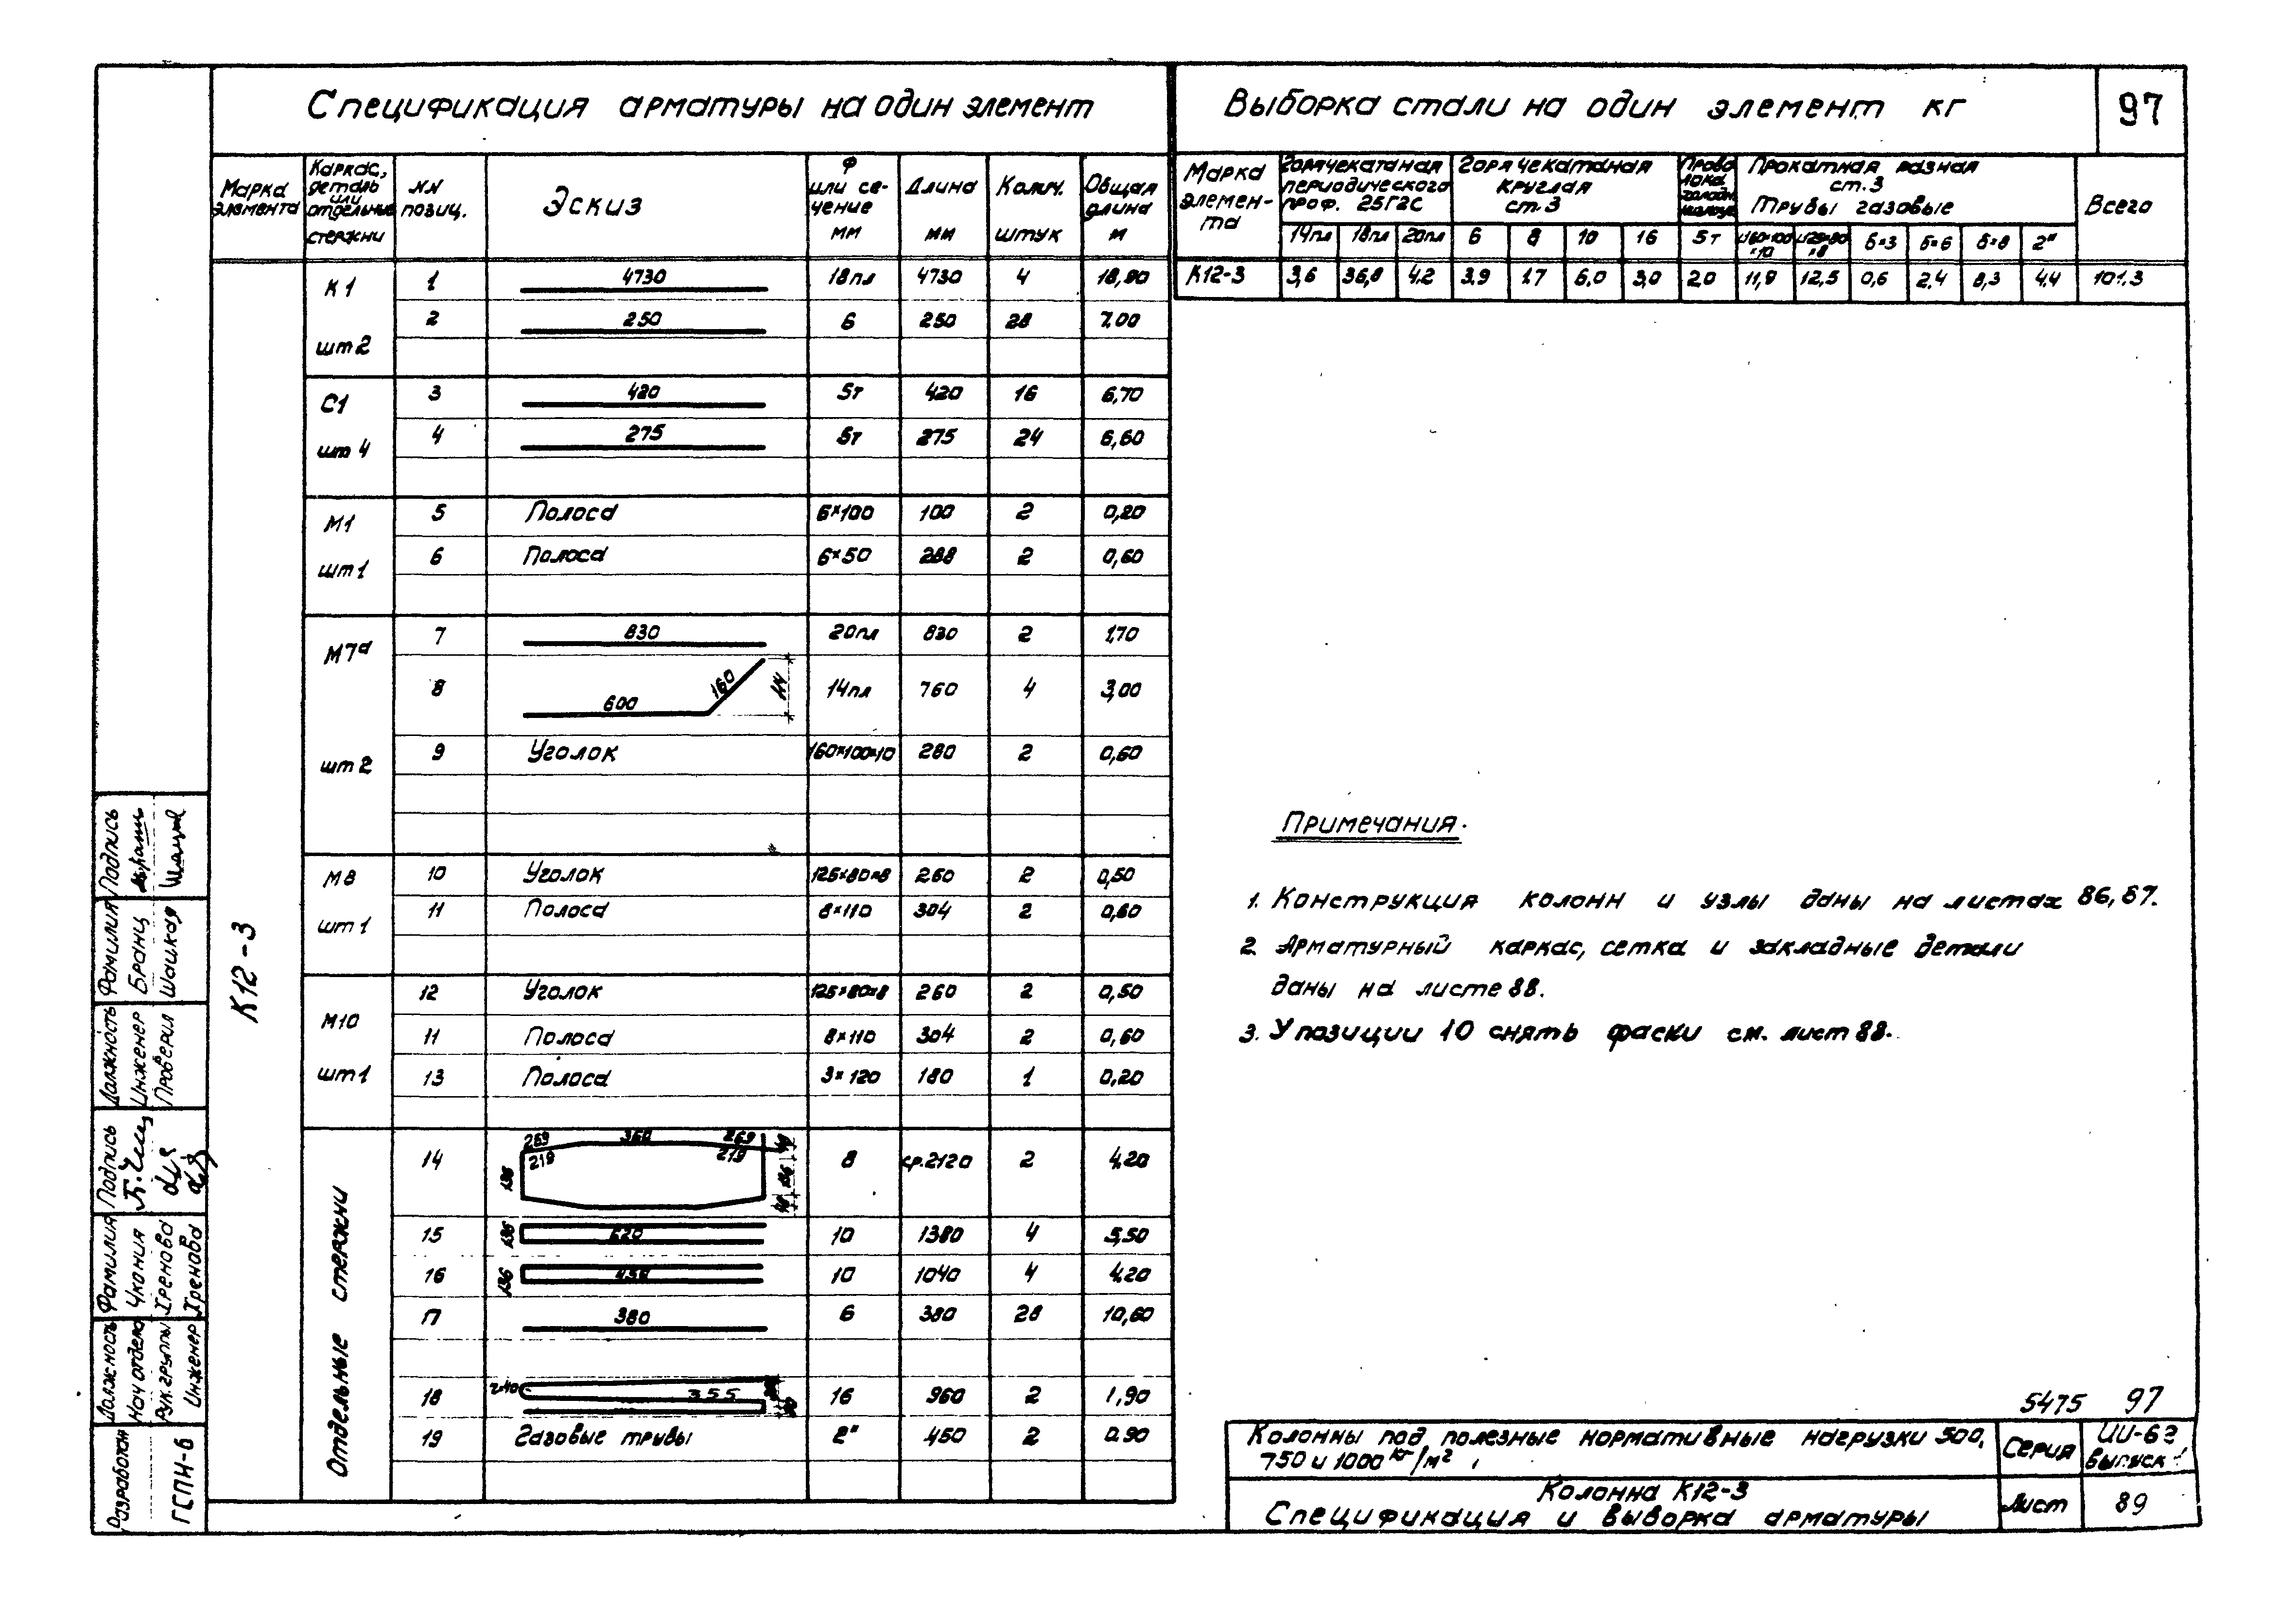 Спецификация арматуры на один элемент
Выборка стали на один элемент кг
97
Марка элемента
Каркас, деталь или отдельные стержни
NN позиц.
Эскиз
Ф или сечение мм
Длина мм
Колич. штук
Общая длина м
К12-3
К1 шт 2
1 4730 18пл 4730 4 18,90
2 250 6 250 28 7,00
С1 шт 4
3 420 5т 420 16 6,70
4 275 5т 275 24 6,60
М1 шт 1
5 Полоса 6×100 100 2 0,20
6 Полоса 6×50 288 2 0,60
М7а шт 2
7 830 20пл 830 2 1,70
8 600 160 14пл 760 4 3,00
9 Уголок 160×100×10 280 2 0,60
М8 шт 1
10 Уголок 125×80×8 260 2 0,50
11 Полоса 8×110 304 2 0,60
М10 шт 1
12 Уголок 125×80×8 260 2 0,50
11 Полоса 8×110 304 2 0,60
13 Полоса 3×120 180 1 0,20
Отдельные стержни
14 269 360 269 219 219 136 8 ср.2120 2 4,20
15 136 620 10 1380 4 5,50
16 136 450 10 1040 4 4,20
17 380 6 380 28 10,60
18 355 16 960 2 1,90
19 Газовые трубы 2" 450 2 0.90
Марка элемента
Горячекатаная периодического проф. 25Г2С
Горячекатаная круглая ст.3
Прокатная разная ст.3
Трубы газовые
Всего
14пл 18пл 20пл 6 8 10 16 5т ∟160×100×10 ∟125×80×8 δ=3 δ=6 δ=8 2"
К12-3 3,6 36,8 4.2 3.9 1.7 6.0 3,0 2,0 11,9 12,5 0,6 2.4 8,3 4.4 101.3
Примечания.
1. Конструкция колонн и узлы даны на листах 86, 87.
2. Арматурный каркас, сетка и закладные детали
даны на листе 88.
3. У позиции 10 снять фаски см. лист 88.
5475 97
Колонны под полезные нормативные нагрузки 500,
750 и 1000 кг/м²
Серия
ИИ-6
Выпуск
Колонна К12-3
Спецификация и выборка арматуры
Лист
89
Должность Фамилия Подпись
Инженер Бранц
Проверил Шацкая
Должность Фамилия Подпись
Нач отдела Чкония
Рук. группы Хренова
Инженер Хренова
Разработан
ГСПИ-6